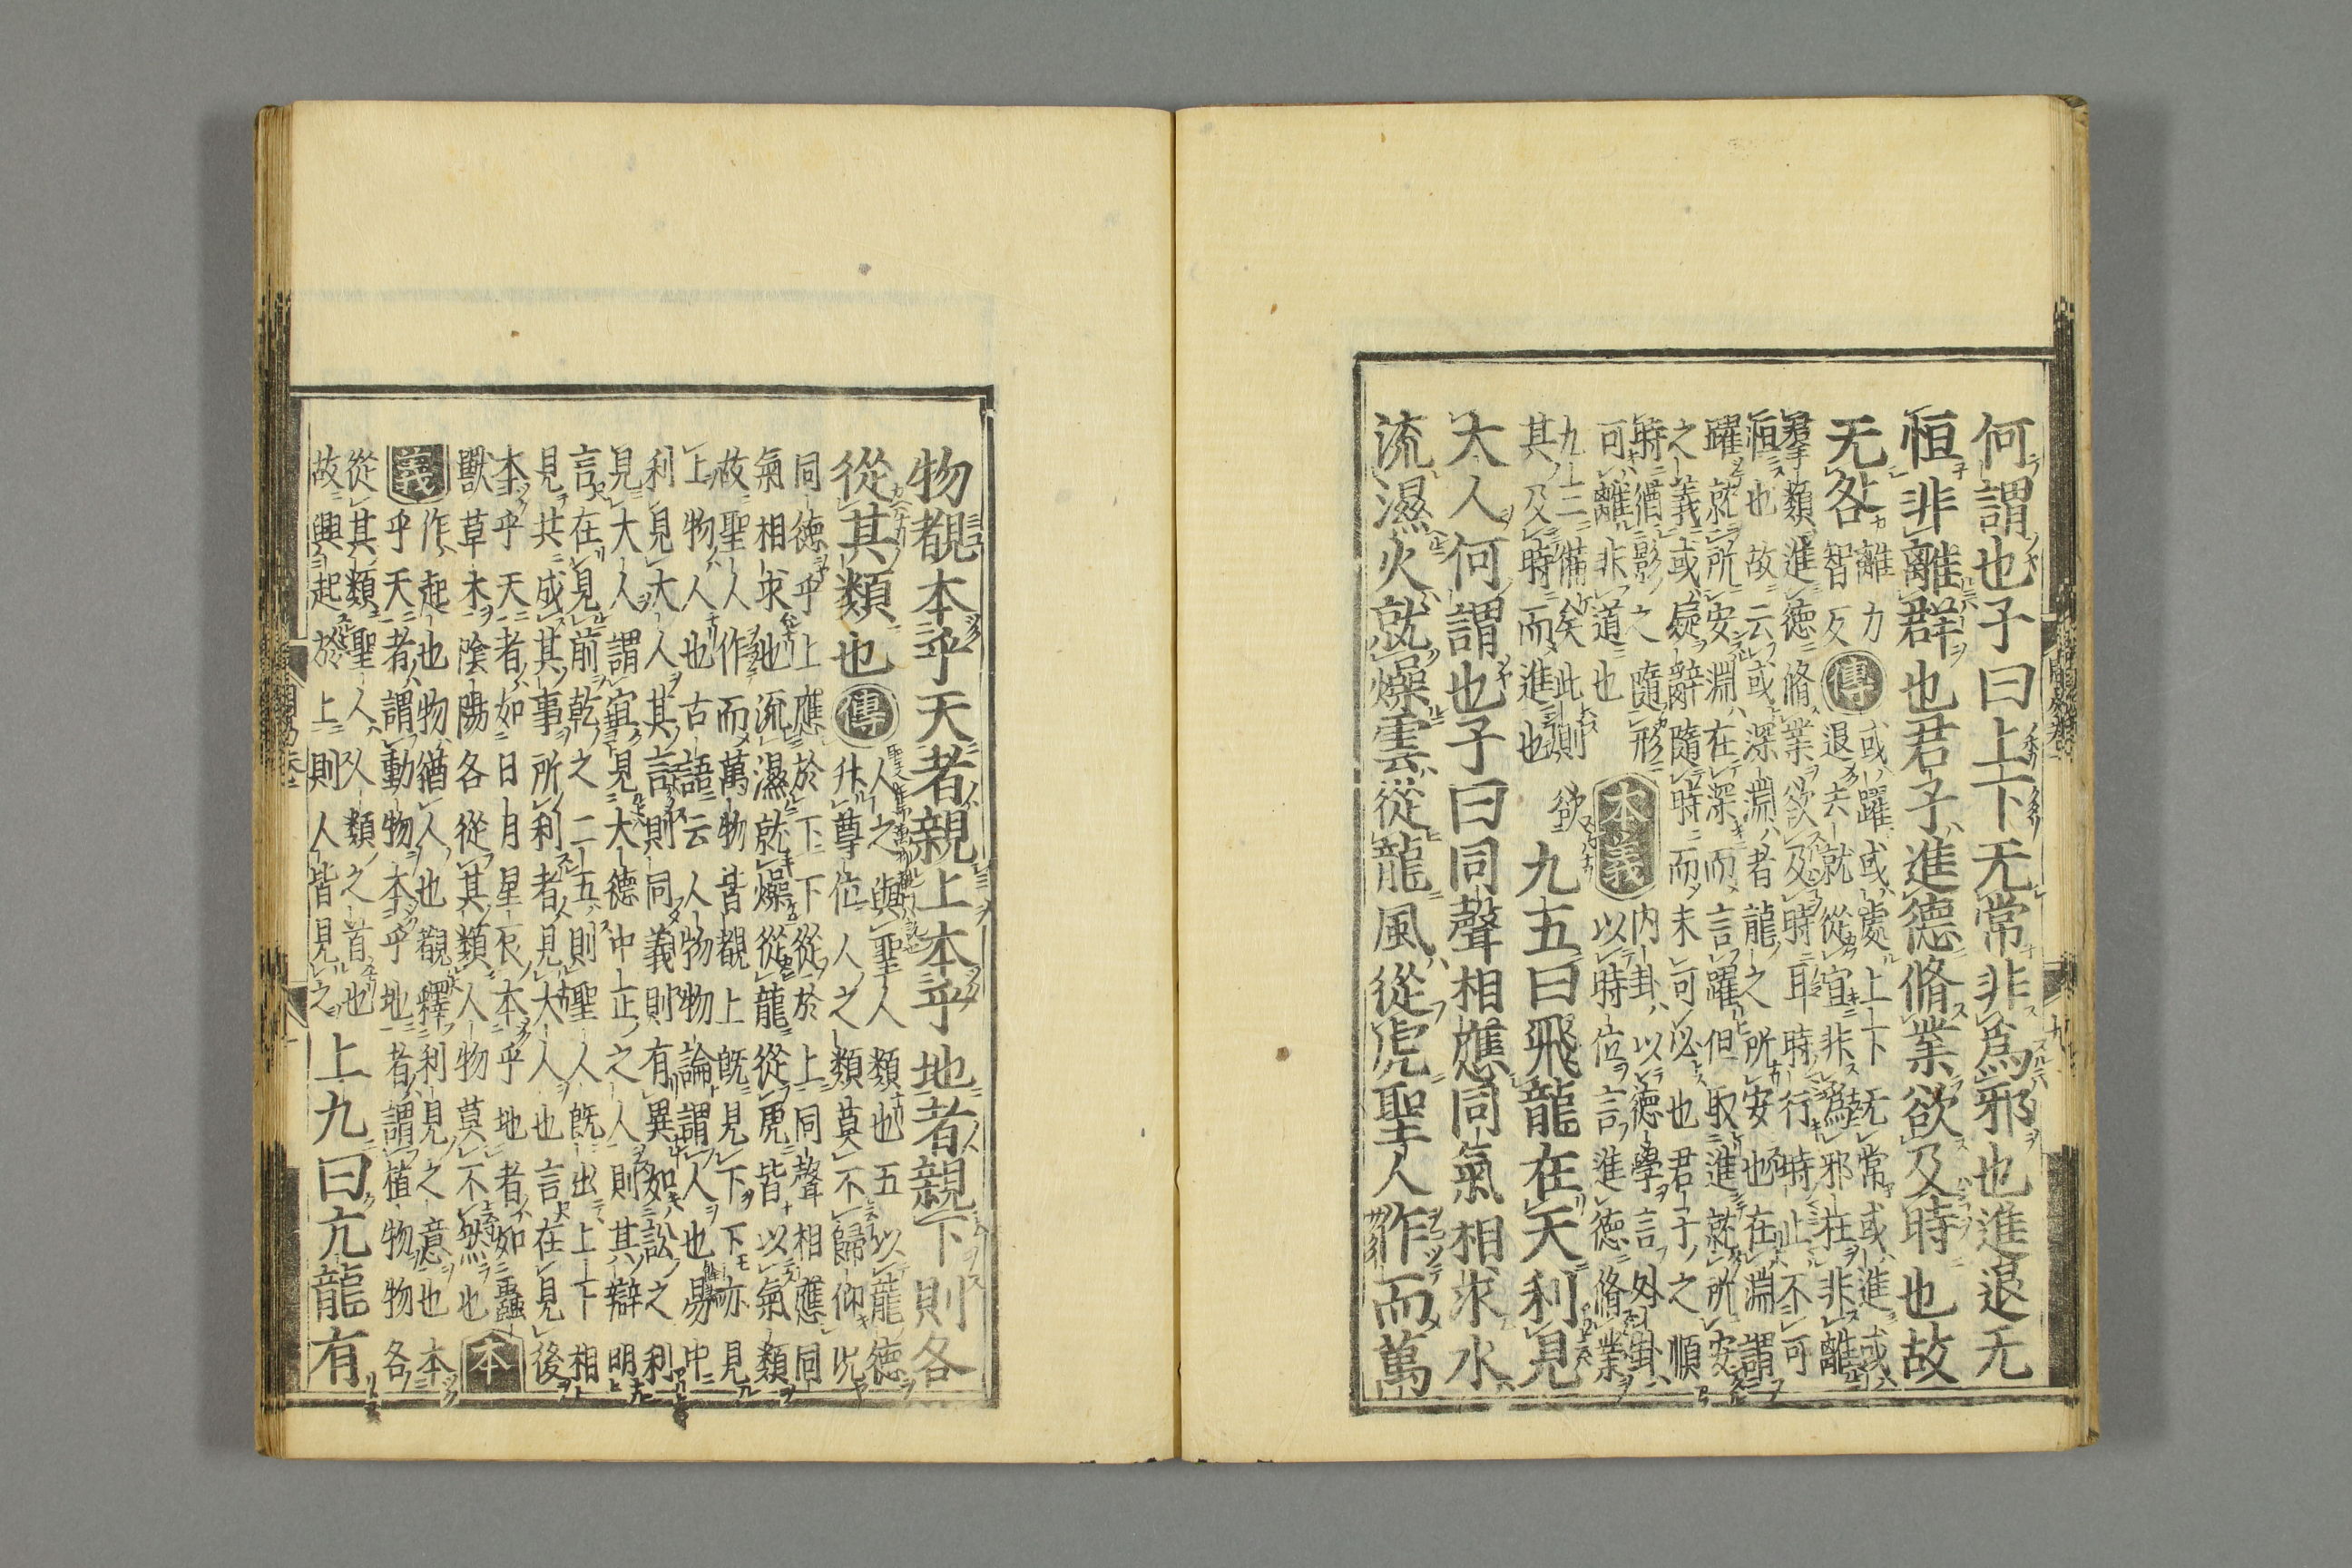 何謂也子曰上下无常非爲邪也進退无
恒非離群也君子進德脩業欲及時也故
无咎離力
智反
傳
或躍或處上下无常或進或
退去就從宜非爲邪枉非離
羣類進德脩業欲及時耳時行時止不可
恒也故云或深淵者龍之所安也在淵謂
躍就所安淵在深而言躍但取進就所安
之義或疑辭隨時而未可必也君子之順
時猶影之隨形
可離非道也
本義
内卦以德學言外卦
以時位言進德脩業
九三備矣此則欲
其及時而進也
九五曰飛龍在天利見
大人何謂也子曰同聲相應同氣相求水
流濕火就燥雲從龍風從虎聖人作而萬
物覩本乎天者親上本乎地者親下則各
從其類也
傳
人之與聖人類也五以龍德
升尊位人之類莫不歸仰况
同德乎上應於下下從於上同聲相應同
氣相求也流濕就燥從龍從虎皆以氣類
故聖人作而萬物皆覩上既見下下亦見
上物人也古語云人物物論謂人也易中
利見大人其言則同義則有異如訟之利
見大人謂宜見大德中正之人則其辯明
言在見前乾之二五則聖人既出上下相
見共成其事所利者見大人也言在見後
本乎天者如日月星辰本乎地者如蟲
獸草木陰陽各從其類人物莫不然也
本
義
作起也物猶人也覩釋利見之意也本
乎天者謂動物本乎地者謂植物物各
從其類聖人人類之首也
故興起於上則人皆見之
上九曰亢龍有